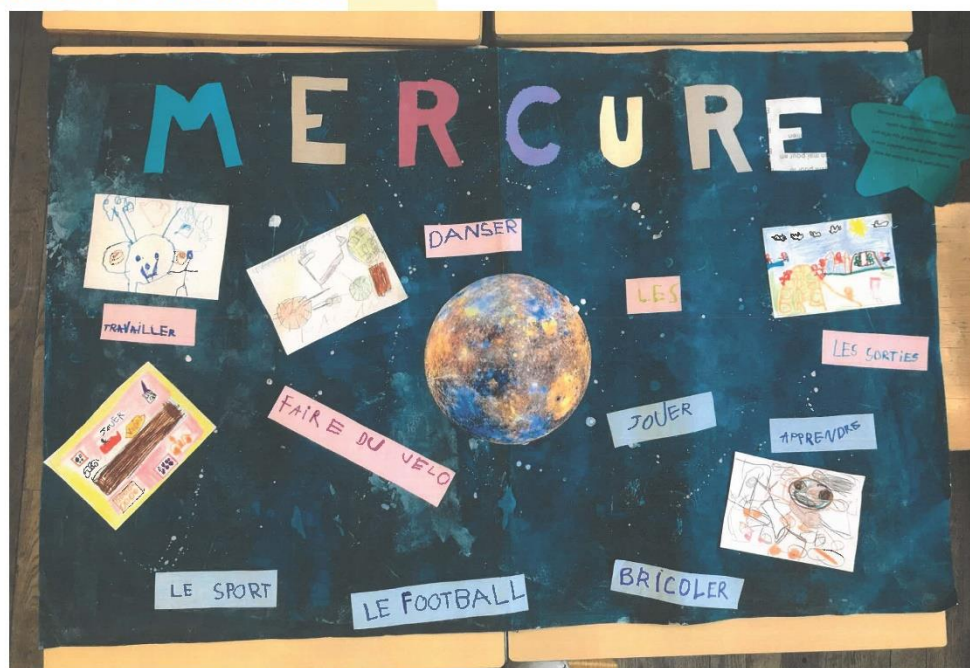 MERCURE
DANSER
LES
TRAVAILLER
LES SORTIES
FAIRE DU VELO
JOUER
JOUER
APPRENDRE
LE SPORT
LE FOOTBALL
BRICOLER